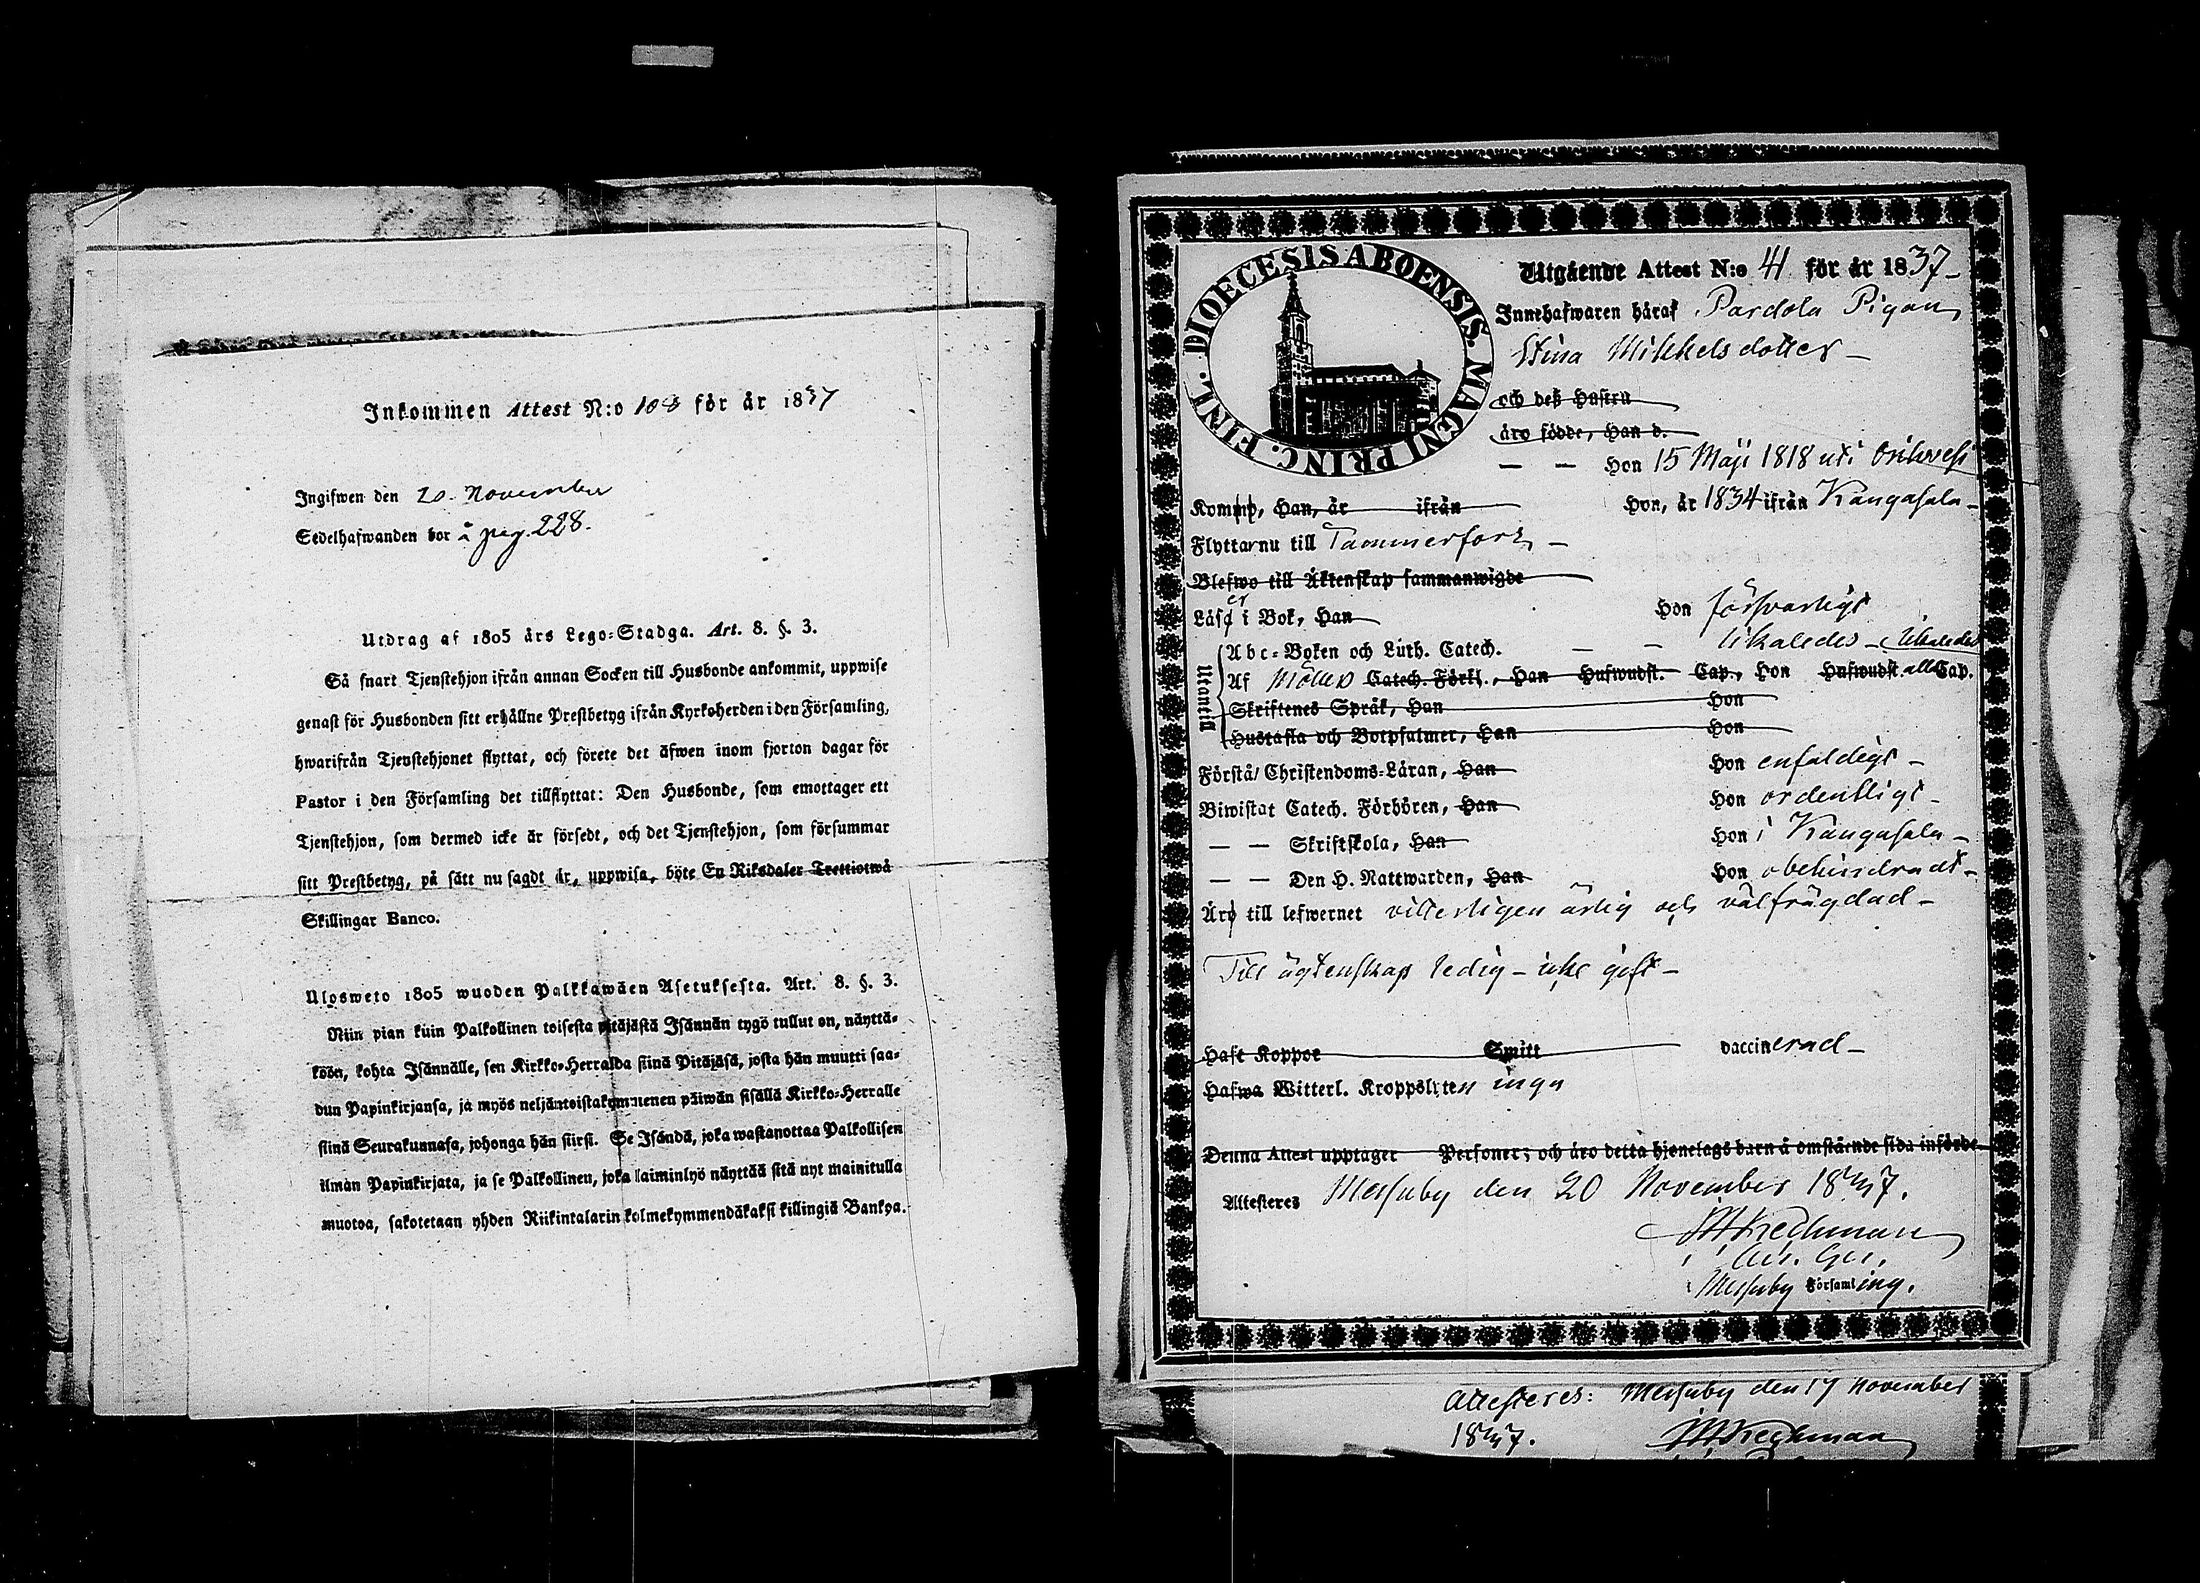 Inkommen Attest N:o 108 för år 1837
Ingifwen den 20. November
Sedelhafwanden bor å pag. 228.
Utdrag af 1805 års Lego-Stadga. Art. 8. §. 3.
Så snart Tjenstehjon ifrån annan Socken till Husbonde ankommit, uppwise
genast för Husbonden sitt erhållne Prestbetyg ifrån Kyrkoherden i den Församling,
hwarifrån Tjenstehjonet flyttat, och förete det äfwen inom fjorton dagar för
Pastor i den Församling det tillflyttat: Den Husbonde, som emottager ett
Tjenstehjon, som dermed icke är försedt, och det Tjenstehjon, som försummar
sitt Prestbetyg, på sätt nu sagdt är, uppwisa, böte En Riksdaler Trettiotwå
Skillingar Banco.
Ulosweto 1805 wuoden Palkkawäen Asetuksesta. Art. 8. §. 3.
Niin pian kuin Palkollinen toisesta pitäjästä Isännän tygö tullut on, näyttä-
köön, kohta Isännälle, sen Kirkko-Herralda siinä Pitäjäsä, josta hän muutti saa-
dun Papinkirjansa, ja myös neljäntoistakymmenen päiwän sisällä Kirkko-Herralle
siinä Seurakunnasa, johonga hän siirsi. Se Isändä, joka wastanottaa Palkollisen
ilman Papinkirjata, ja se Palkollinen, joka laiminlyö näyttää sitä nyt mainitulla
muotoa, sakotetaan yhden Riikintalarin kolmekymmendäkaksi killingiä Bankoa.
DIOECESIS ABOENSIS. MAGNI PRINC. FINL.
Utgående Attest N:o 41 för år 1837-
Innehafwaren häraf Pardola Pigan
Stina Mikkelsdotter -
och deß Hustru
äro födde, Han d.
— — Hon 15 Maji 1818 uti Orihvesi
Komne, Han, år ifrån Hon, år 1834 ifrån Kangasala -
Flyttar nu till Tammerfors -
Blefwo till Äktenskap sammanwigde
Läser i Bok, Han Hon försvarligt
Abc-Boken och Luth. Catech. — — likaledes - likaledes
Utantill
Af Möllers Catech. Förkl., Han Hufwudst. Cap., Hon Hufwudst. alla Cap.
Skriftenes Språk, Han Hon
Hustafla och Botpsalmer, Han Hon
Förstå Christendoms-Läran, Han Hon enfaldigt -
Biwistat Catech. Förhören, Han Hon ordentligt -
— — Skriftskola, Han Hon i Kangasala -
— — Den H. Nattwarden, Han Hon obehindradt -
Äro till lefwernet vitterligen ärlig och välfrägdad -
Till ägtenskap ledig - icke gift -
Haft Koppor Smitt vaccinerad -
Hafwa Witterl. Kroppslyten inga
Denna Attest upptager Personer; och äro detta hjonelags barn å omstående sida införde
Attesteres Messuby den 20 November 1837.
Messuby Församling.
Attesteres: Messuby den 17 November
1837.